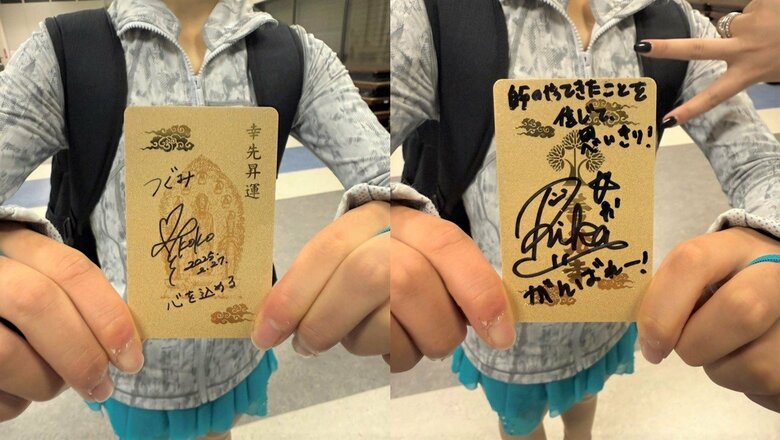 幸先昇運
つぐみ
2025
2.27.
心を込める
師のやってきたことを
信じて
思いきり!
Rika
がんばれー!